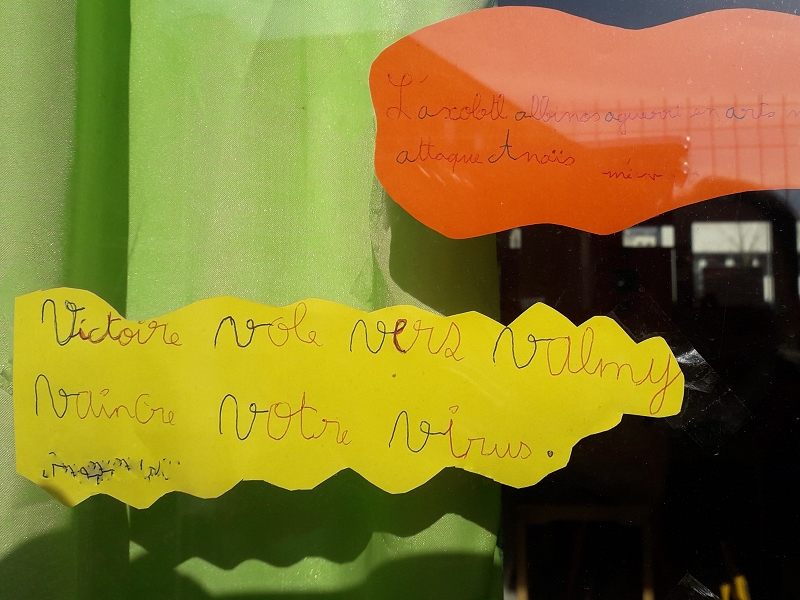 L'axolotl albinos aguerri en arts
attaque Anaïs
Victoire vole vers Valmy
vaincre votre virus.